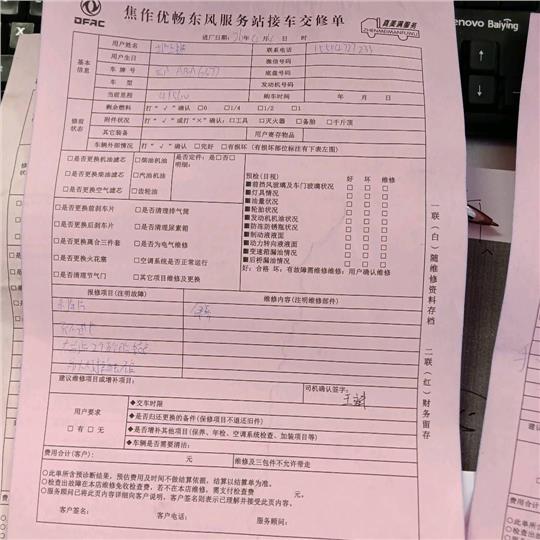 DFAC
焦作优畅东风服务站接车交修单
真美满服务
ZHENMEIMANFUWU
进厂日期: 年 月 日
基本信息
用户姓名
联系电话
用户生日
微信号码
车牌号
底盘号码
车型
发动机号码
当前里程
购车时间 年 月 日
修前状态
剩余燃料 打“√”确认 □0 □1/4 □1/2 □1
附件状况 打“√”或打“×”确认:□工具 □灭火器 □备胎 □千斤顶
其它装备
用户寄存物品
车辆外部情况 打“√”确认 □完好 □有损(有损部位标注有下表左图)
□是否更换机油滤芯 □柴油机油 是否定件:是□否□
□是否更换柴油滤芯 □汽油机油 明细:
□是否更换空气滤芯 □齿轮油
□是否更换前刹车片 □是否清理排气筒
□是否更换后刹车片 □是否清理尿素箱
□是否更换离合三件套 □是否为电气维修
□是否更换火花塞 □空调系统是否正常运行
□是否清理节气门 □其它项目维修及更换
预检(目视) 好 坏 维修
■前挡风玻璃及车门玻璃状况 □ □ □
■灯具情况 □ □ □
■油量状况 □ □ □
■轮胎状况 □ □ □
■发动机机油状况 □ □ □
■防冻防锈瓶状况 □ □ □
■制动液液面 □ □ □
■动力转向液液面 □ □ □
■变速箱漏油情况 □ □ □
■后桥漏油情况 □ □ □
好:合格 坏:有故障需维修维修:用户确认维修
报修项目(注明故障)
维修内容(注明维修部件)
建议维修项目或增补项目:
司机确认签字:
用户要求
□有 □无
◆交车时限
◆是否归还更换的备件(保修项目不退还旧件)
◆是否增补其他项目(保养、年检、空调系统检查、加装项目等)
◆车辆是否需要清洁:
费用合计(客户): 元
维修及三包件不允许带走
○此单所含预诊断结果,预估费用及时间不做结算依据,结算以结算单为准。
○检查出故障在本店维修免收检查费,若不在本店维修,需支付检查费 元。
○服务顾问已将此页内容详细向客户说明,客户签名则表示已理解并接受此页内容。
客户签名: 客户电话: 服务顾问:
一联(白)随维修资料存档
二联(红)财务留存
lenovo Baiying